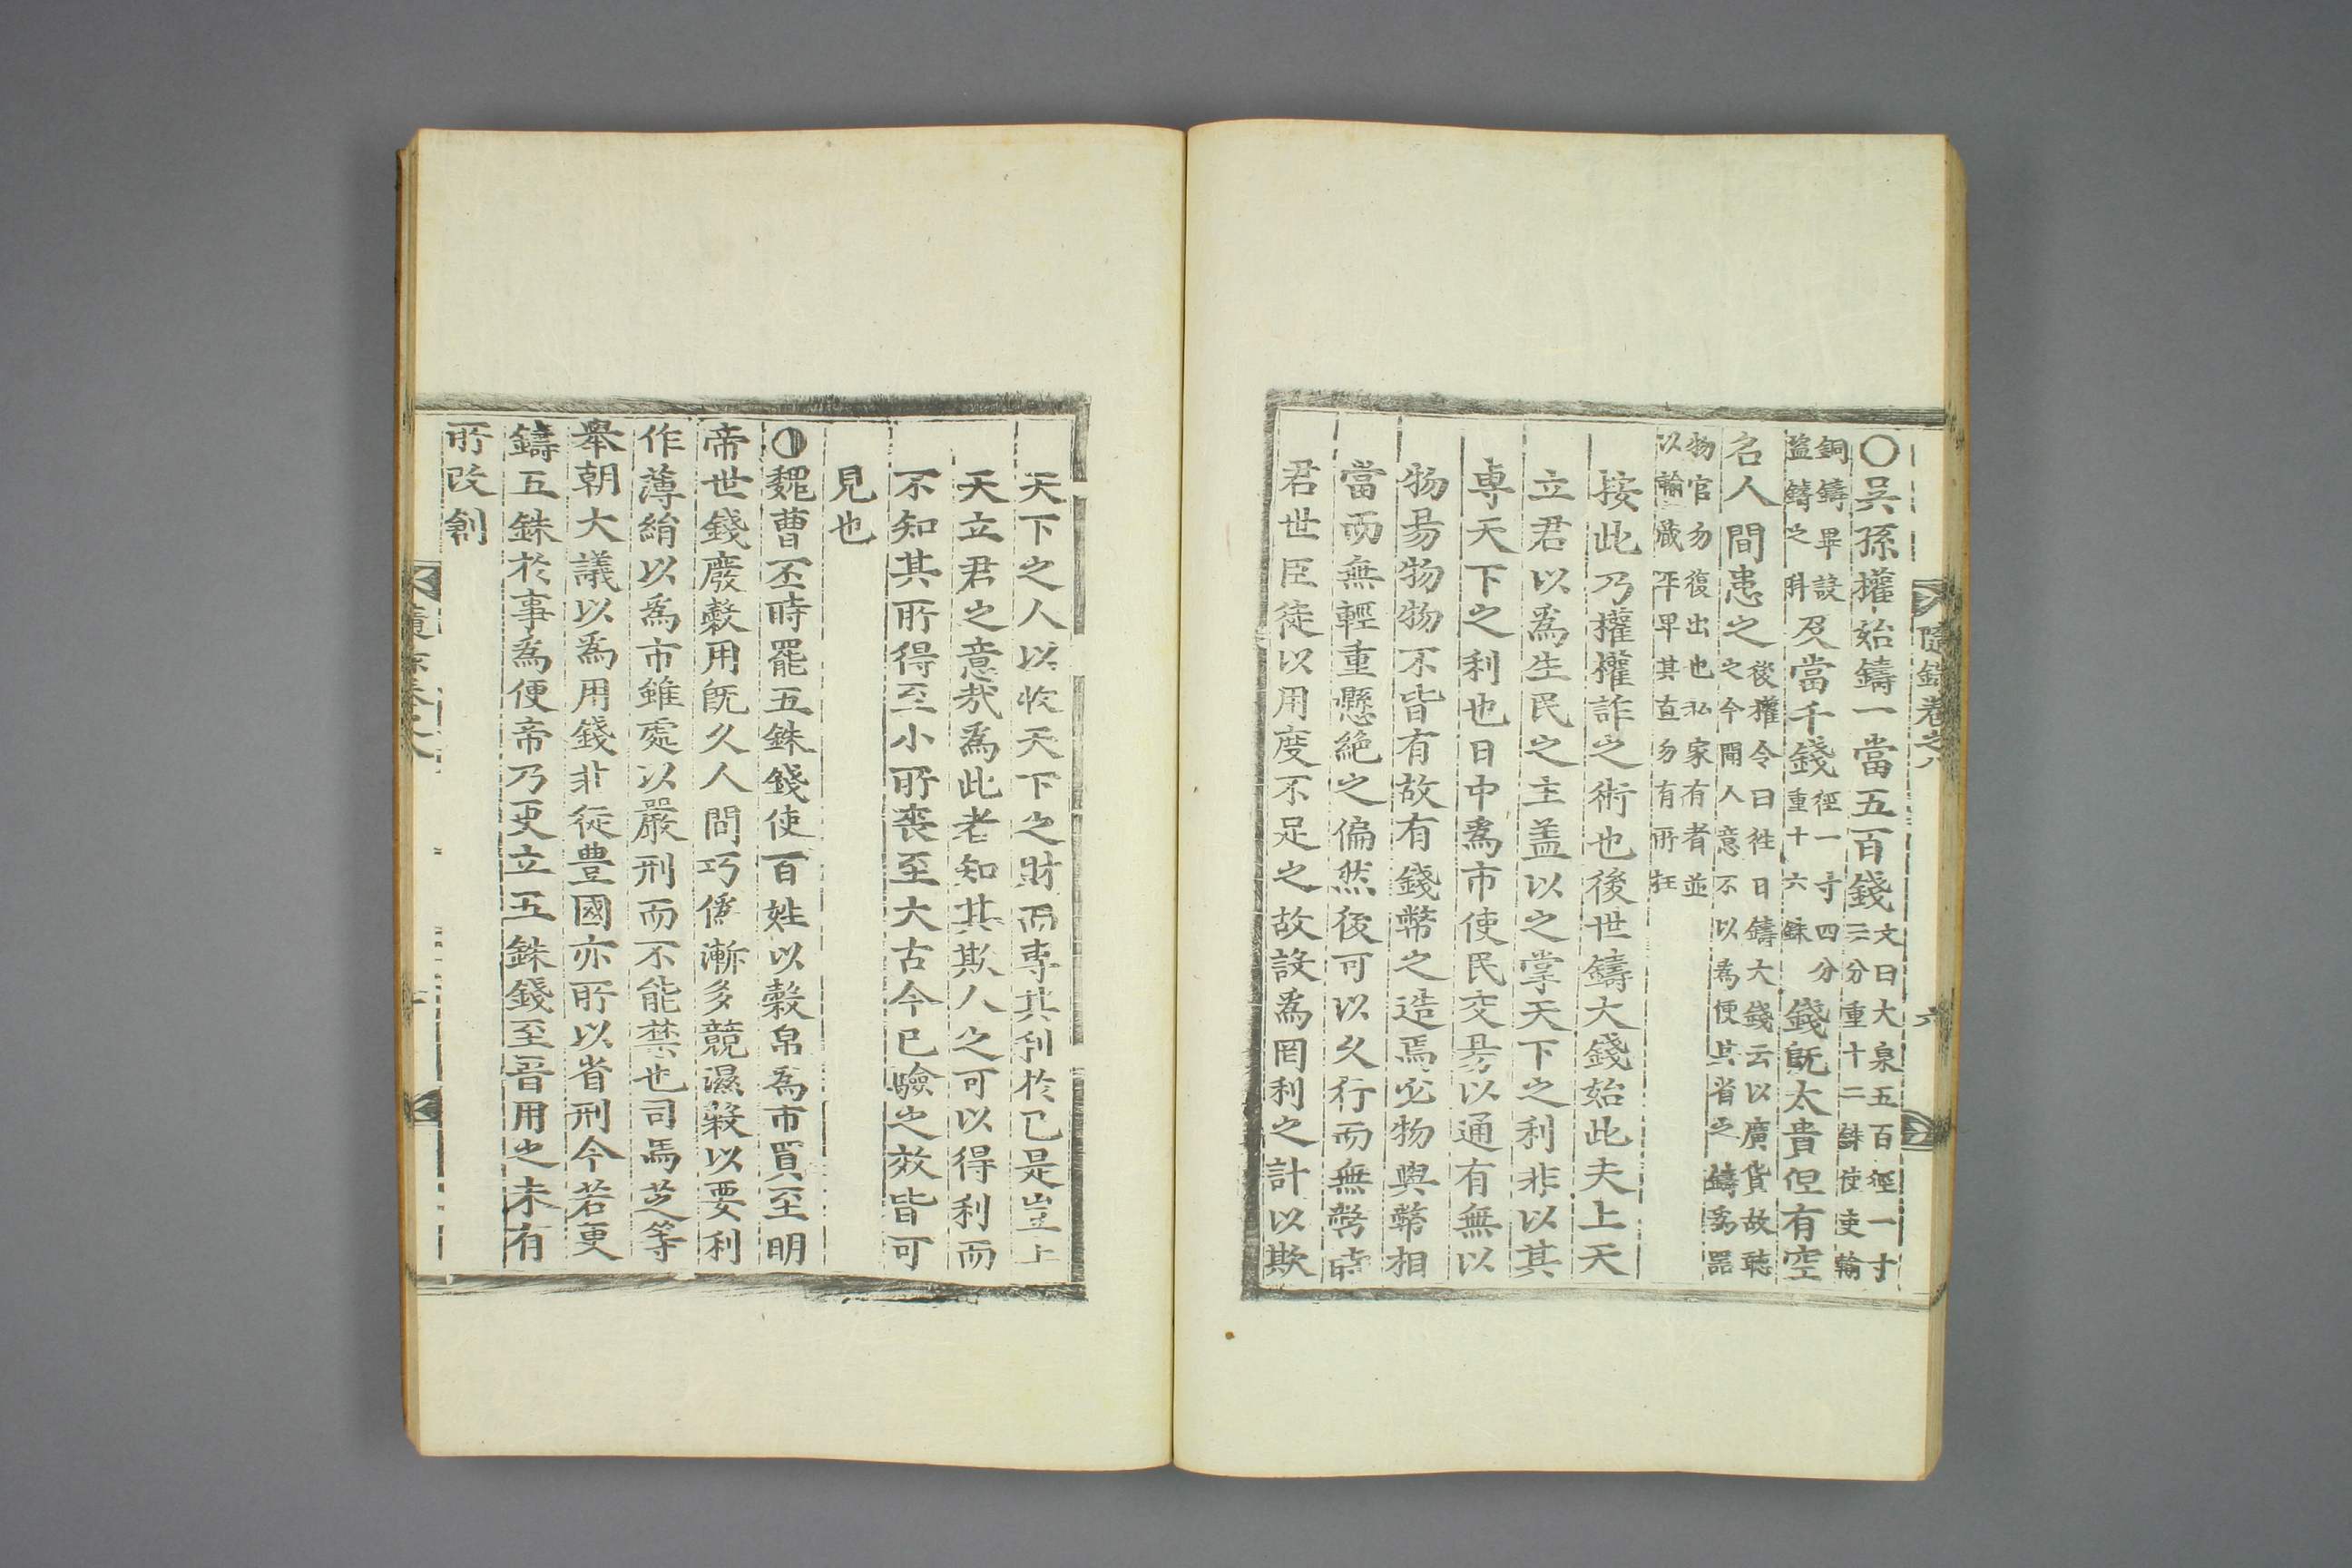 隨錄卷之八 六
○吳孫權始鑄一當五百錢文曰大泉五百徑一寸三分重十二銖使吏輸
銅鑄畢設盜鑄之科及當千錢徑一寸四分重十六銖錢旣太貴但有空
名人間患之後權令曰往日鑄大錢云以廣貨故聽之今聞人意不以爲便其省之鑄爲器
物官勿復出也私家有者並以輸藏平卑其直勿有所枉
按此乃權權詐之術也後世鑄大錢始此夫上天
立君以爲生民之主盖以之掌天下之利非以其
專天下之利也日中爲市使民交易以通有無以
物易物物不皆有故有錢幣之造焉必物與幣相
當而無輕重懸絶之偏然後可以久行而無弊時
君世臣徒以用度不足之故設爲罔利之計以欺
天下之人以收天下之財而專其利於已是豈上
天立君之意哉爲此者知其欺人之可以得利而
不知其所得至小所喪至大古今已驗之效皆可
見也
○魏曹丕時罷五銖錢使百姓以穀帛爲市買至明
帝世錢廢穀用旣久人間巧僞漸多競濕穀以要利
作薄絹以爲市雖處以嚴刑而不能禁也司馬芝等
舉朝大議以爲用錢非徒豊國亦所以省刑今若更
鑄五銖於事爲便帝乃更立五銖錢至晉用之未有
所改創